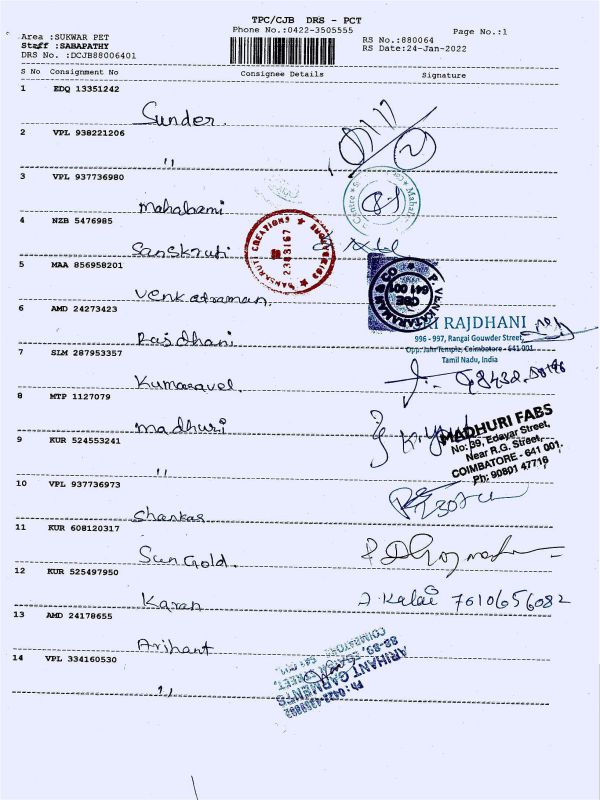 TPC/CJB DRS - PCT
Phone No.:0422-3505555
Page No.:1
Area :SUKWAR PET
RS No.:880064
Staff :SABAPATHY
RS Date:24-Jan-2022
DRS No. :DCJB88006401
S No Consignment No Consignee Details Signature
1 EDQ 13351242
Sunder.
2 VPL 938221206
"
3 VPL 937736980
Mahabani
4 NZB 5476985
Sanskruti
SANSKRUTI CREATIONS
2303167
COIMBATORE
5 MAA 856958201
Venkatraman.
P. VENKATTARAMAN & CO
CBE
641 001
6 AMD 24273423
Rajdhani
RAJDHANI
996 - 997, Rangai Gowder Street,
Opp: Jain Temple, Coimbatore - 641 001
Tamil Nadu, India
7 SLM 287953357
Kumaravel.
8 MTP 1127079
Madhuri
MADHURI FABS
No: 39, Edayar Street,
Near R.G. Street,
COIMBATORE - 641 001.
Ph: 90801 47716
9 KUR 524553241
"
10 VPL 937736973
Shankar
11 KUR 608120317
Sun Gold.
12 KUR 525497950
Karan
J. Kalai 7610656082
13 AMD 24178655
Arihant
ARIHANT GARMENTS
14 VPL 334160530
"